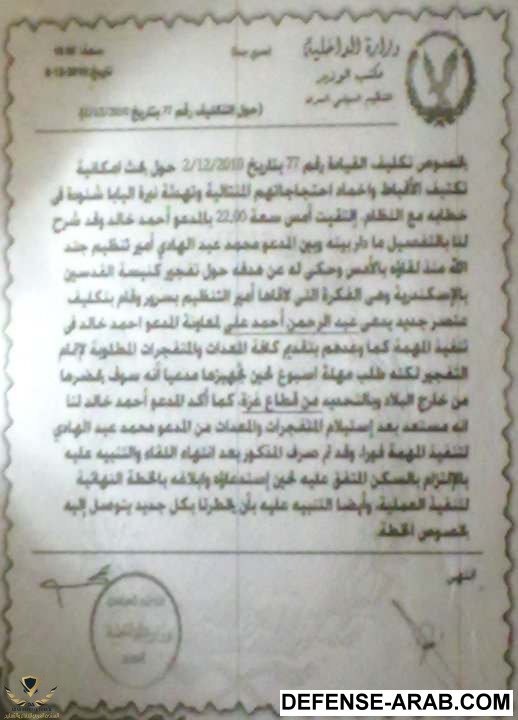 وزارة الداخلية
مكتب الوزير
التنظيم السياسي السري
(سري جدا)
تاريخ 8-12-2010
(حول التكليف رقم 77 بتاريخ 2/12/2010)
بخصوص تكليف القيادة رقم 77 بتاريخ 2/12/2010 حول بحث امكانية
تكتيف الأقباط واخماد احتجاجاتهم المتتالية وتهدئة نبرة البابا شنودة في
خطابه مع النظام. إلتقيت أمس سعة 22.00 بالمدعو أحمد خالد وقد شرح
لنا بالتفصيل ما دار بينه وبين المدعو محمد عبد الهادي أمير تنظيم جند
الله منذ لقاؤه بالأمس وحكي له عن هدفه حول تفجير كنيسة القدسين
بالإسكندرية وهى الفكرة التي لاقاها أمير التنظيم بسرور وقام بتكليف
عنصر جديد يدعى عبد الرحمن أحمد علي لمعاونة المدعو احمد خالد فى
تنفيذ المهمة كما وعدهم بتقديم كافة المعدات والمتفجرات المطلوبة لإتمام
التفجير لكنه طلب مهلة اسبوع لحين تجهيزها مدعيا أنه سوف يحضرها
من خارج البلاد وبالتحديد من قطاع غزة. كما أكد المدعو أحمد خالد لنا
انه مستعد بعد إستيلام المتفجرات والمعدات من المدعو محمد عبد الهادي
لتنفيذ المهمة فورا. وقد تم صرف المذكور بعد انتهاء اللقاء والتنبيه عليه
بالإلتزام بالسكن المتفق عليه لحين إستدعاؤه وابلاغه بالخطة النهائية
لتنفيذ العملية. وأيضا التنبيه عليه بأن يخطرنا بكل جديد يتوصل إليه
بخصوص الخطة.
انتهى
DEFENSE-ARAB.COM